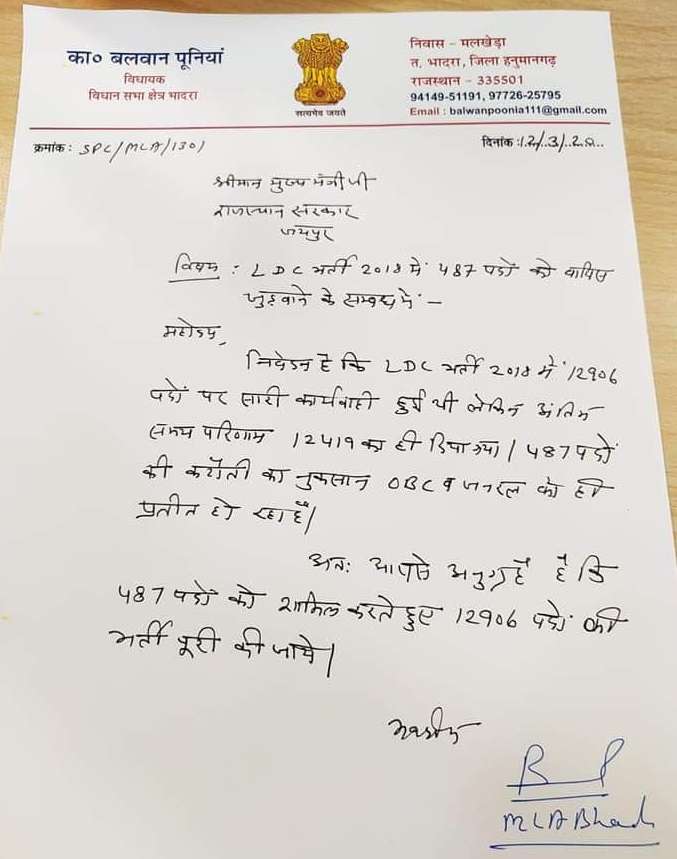 का० बलवान पूनियां
विधायक
विधान सभा क्षेत्र भादरा
सत्यमेव जयते
निवास - मलखेड़ा
त. भादरा, जिला हनुमानगढ़
राजस्थान - 335501
94149-51191, 97726-25795
Email : balwanpoonia111@gmail.com
क्रमांक : SPC/MLA/1301
दिनांक :12/3/20
श्रीमान मुख्यमंत्री जी
राजस्थान सरकार
जयपुर
विषय : LDC भर्ती 2018 में 487 पदों को वापिस
जुड़वाने के सम्बन्ध में : -
महोदय,
निवेदन है कि LDC भर्ती 2018 में 12906
पदों पर सारी कार्यवाही हुई थी लेकिन अंतिम
समय परिणाम 12419 का ही दिया गया। 487 पदों
की कटौती का नुकसान OBC व जनरल को ही
प्रतीत हो रहा है।
अतः आपसे अनुग्रह है कि
487 पदों को शामिल करते हुए 12906 पदों की
भर्ती पूरी की जाये।
भवदीय
MLA Bhadra